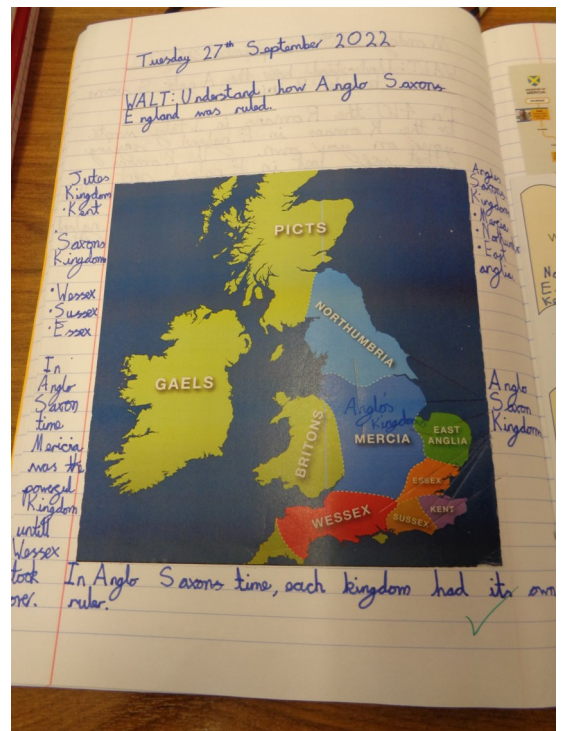 Tuesday 27th September 2022
WALT: Understand how Anglo Saxons
England was ruled.
Jutes
Kingdom
• Kent
Saxons
Kingdom
• Wessex
• Sussex
• Essex
In
Anglo
Saxon
time
Mericia
was the
Kingdom
untill
Wessex
took
over.
PICTS
NORTHUMBRIA
GAELS
Anglo's
Kingdom
MERCIA
BRITONS
EAST
ANGLIA
ESSEX
WESSEX
SUSSEX
KENT
Kingdom
• East
anglia
Anglo
Saxon
Kingdom
In Anglo Saxons time, each kingdom had its own
ruler.